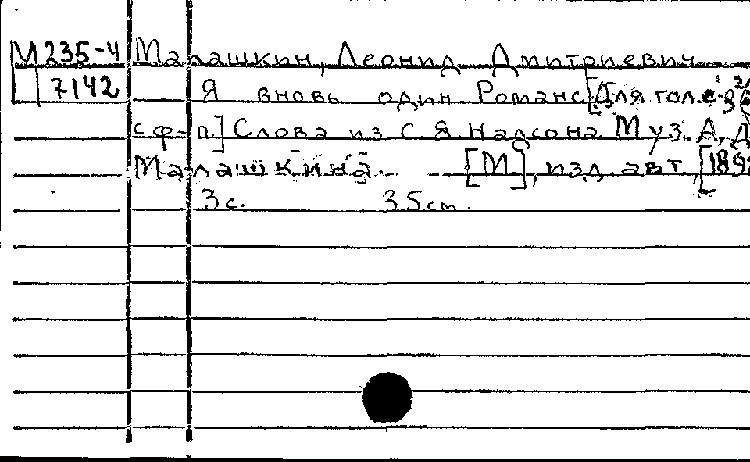 М 235-4 Малашкин, Леонид Дмитриевич
7142 Я вновь один Романс [Для голоса
с ф-п.] Слова из С. Я. Надсона Муз. Л. Д.
Малашкина. [М], изд. авт, [189
3 с. 35 cm.